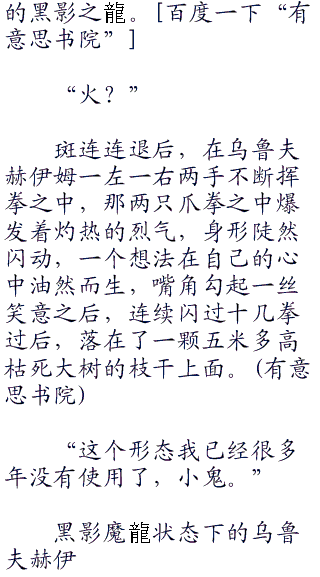 的黑影之龍。[百度一下“有
意思书院”]
“火？”
斑连连退后，在乌鲁夫
赫伊姆一左一右两手不断挥
拳之中，那两只爪拳之中爆
发着灼热的烈气，身形陡然
闪动，一个想法在自己的心
中油然而生，嘴角勾起一丝
笑意之后，连续闪过十几拳
过后，落在了一颗五米多高
枯死大树的枝干上面。(有意
思书院)
“这个形态我已经很多
年没有使用了，小鬼。”
黑影魔龍状态下的乌鲁
夫赫伊